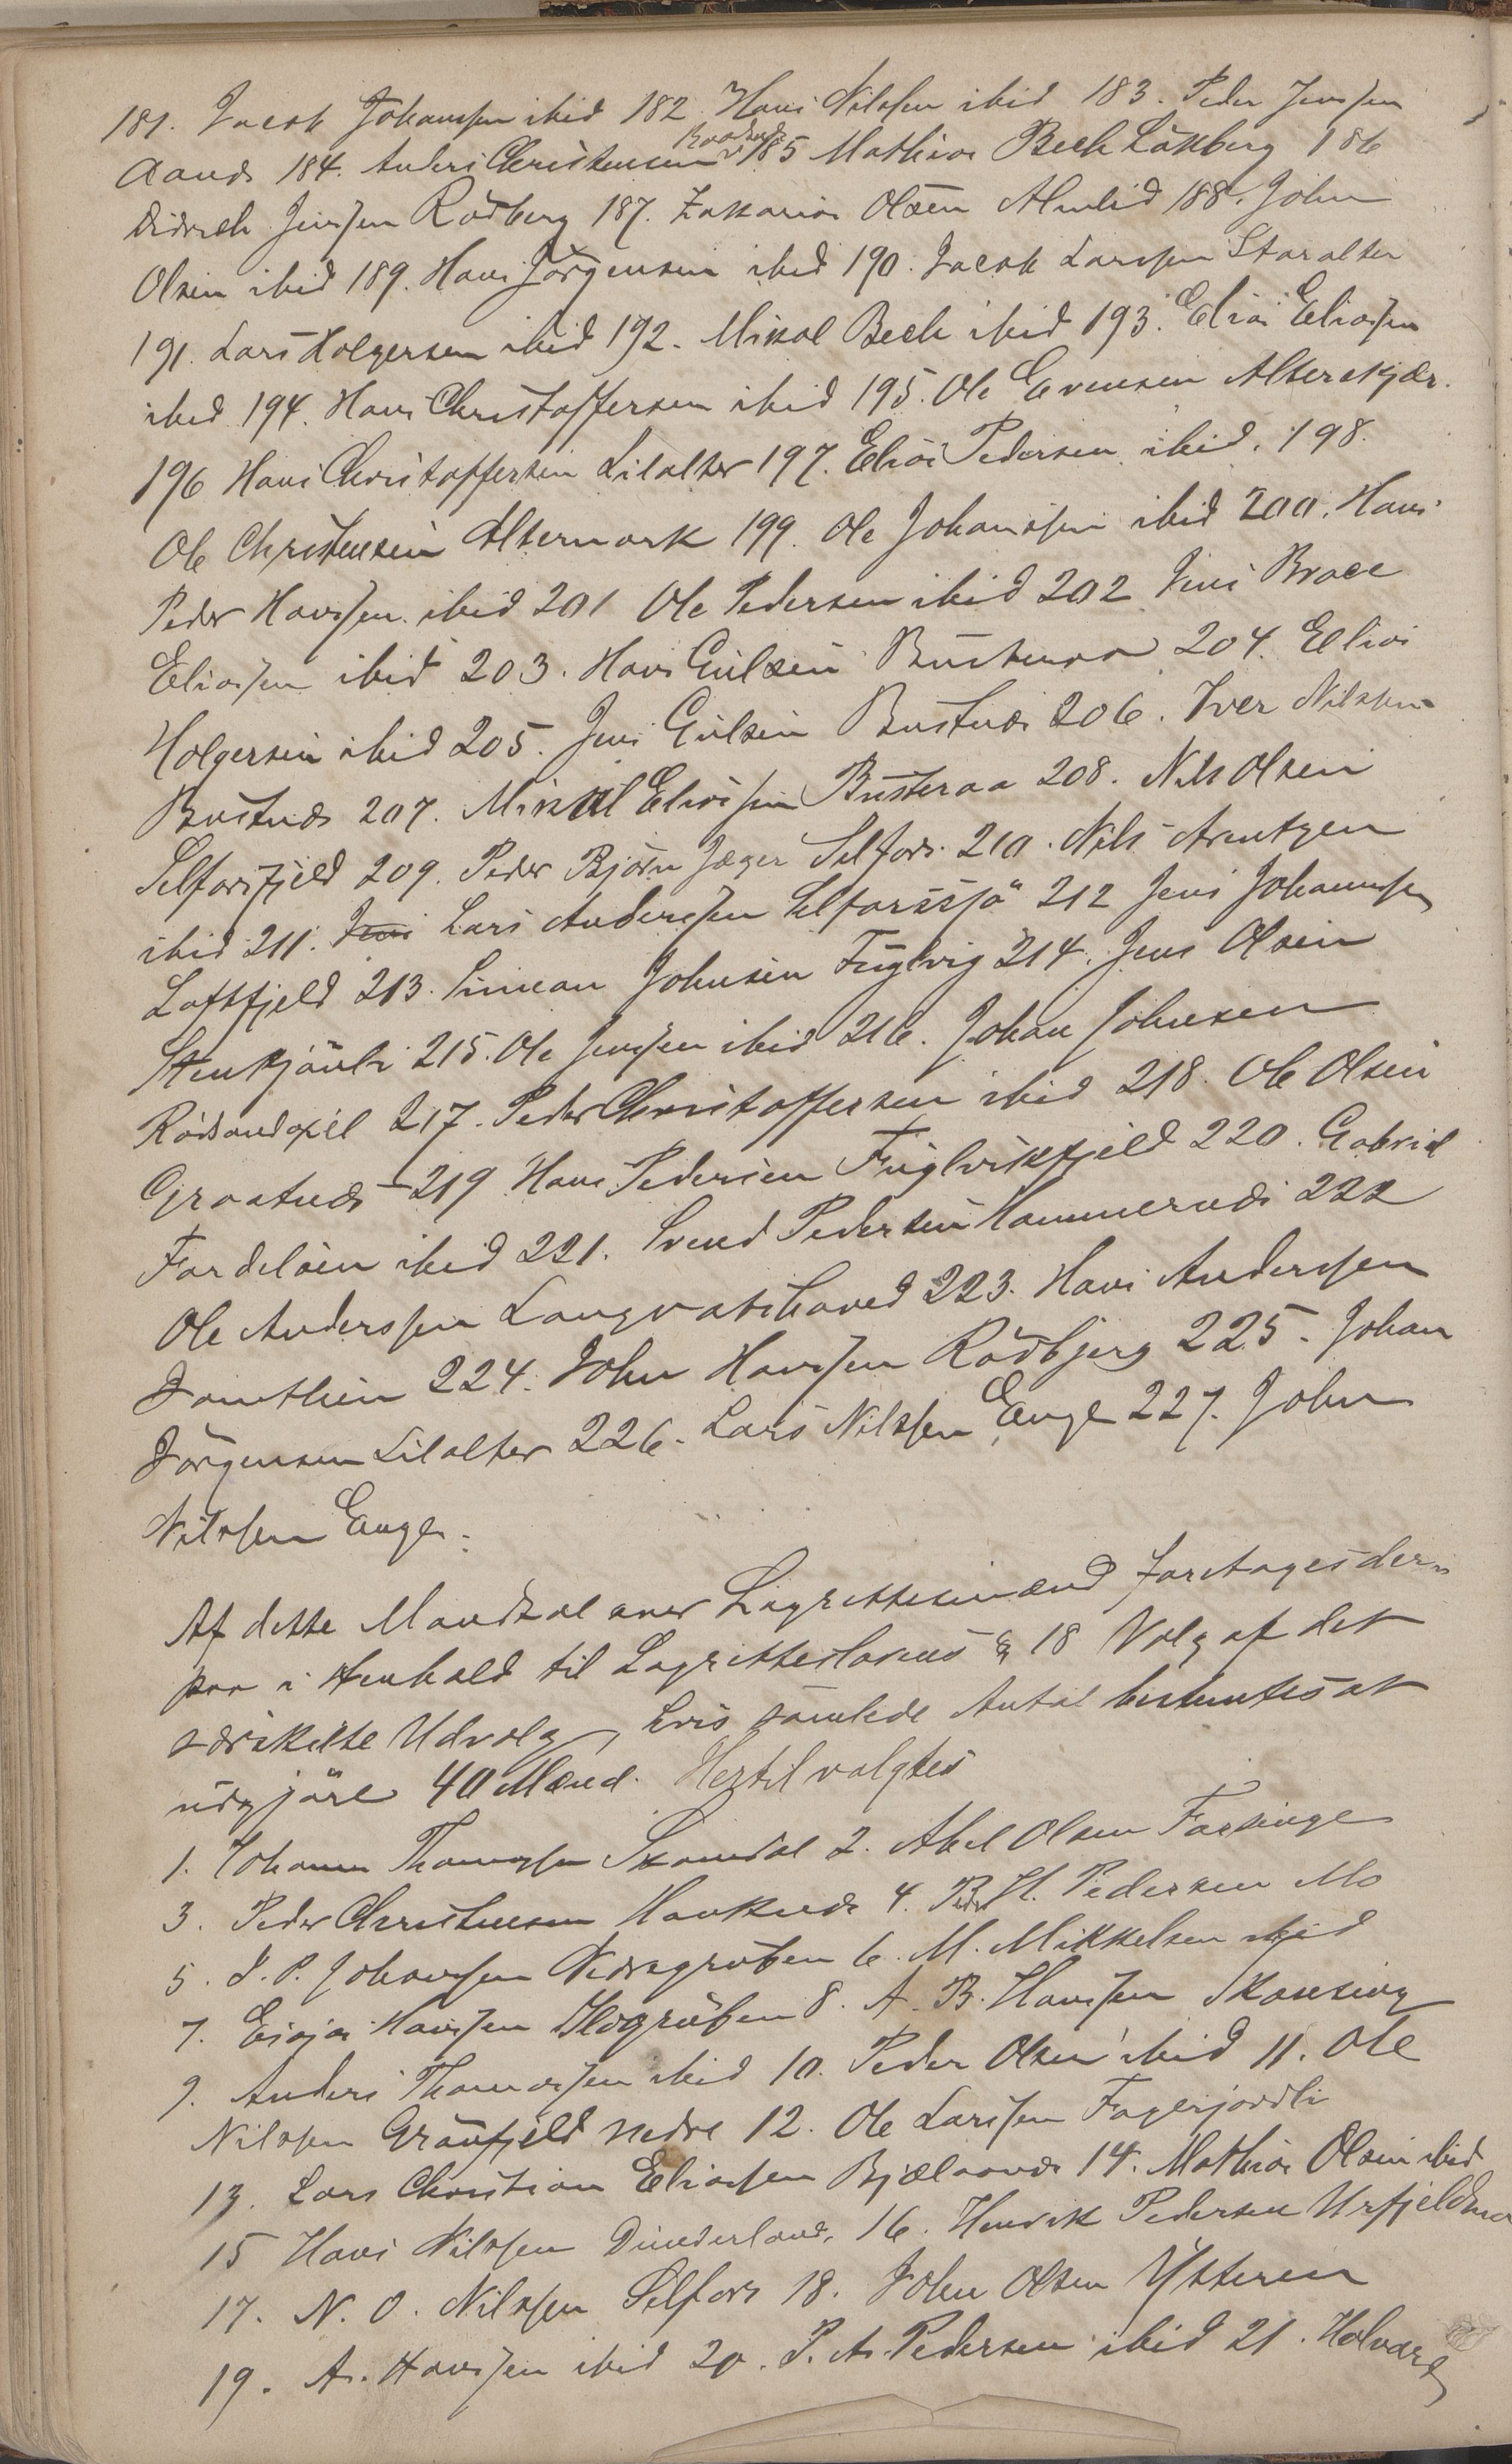 181. Jacob Johanssen ibid 182. Hans Nilssen ibid 183. Peder Jenssen
Aanæs 184. Anders Christensen 185 Mathias Bech Laxberg 186
Didrich Jenssen Rödberg 187. Zakarias Olsen Almlid 188. John
Olsen ibid 189. Hans Jörgensen ibid 190. Jacob Larssen Storalter
191. Lars Holgersen ibid 192. Mikal Bech ibid 193. Elias Eliassen
ibid 194. Hans Christoffersen ibid 195. Ole Evensen Alterskjær.
196 Hans Christoffersen Lilalter 197. Elias Pedersen ibid. 198.
Ole Christensen Altermark 199. Ole Johanssen ibid 200. Hans
Peder Hanssen ibid 201 Ole Pedersen ibid 202 Jens Brace
Eliassen ibid 203. Hans Guldsen Busteraa 204. Ellias
Holgersen ibid 205. Jens Gulsen Bustnæs 206. Iver Nilssen
Bustnæs 207. Mikal Eliassen Busteraa 208. Nils Olsen
Selforsfjeld 209. Peder Bjørn Jæger Selfors 210. Nils Arentzen
ibid 211. Jens Lars Anderssen Selforssjö 212 Jens Johannssen
Loftfjeld 213. Simean Johnsen Fuglvig 214. Jens Olsen
Stenkjönli 215. Ole Jenssen ibid 216. Johan Johnsen
Rödsandøil 217. Peder Christoffersen ibid 218. Ole Olsen
Graatnæs 219 Hans Pedersen Fuglvikfjeld 220. Gabriel
Fordelsen ibid 221. Svend Pedersen Hammernæs 222
Ole Anderssen Langvatshaved 223. Hans Anderssen
Jamtlien 224. John Hanssen Rödbjerg 225. Johan
Jörgensen Lilalter 226. Lars Nilssen Enge 227. John
Nilssen Enge.
Af dette Mandtal over Lagrettesmænd foretoges der-
paa i Henhold til Lagretteslovens § 18 Valg af det
særskilte Udvalg, hvis samlede Antal bestemtes at
udgjöre 40 Mænd. Hertil valgtes
1. Johann Thomassen Skamdal 2. Abel Olsen Forsinge
3. Peder Christensen Hauknæs 4. Peder H. Pedersen Mo
5. J. P. Johanssen Nedregruben 6. M. Mikkelsen ibid
7. Esajas Hanssen Ildgruben 8. A. B. Hanssen Skonseng
9. Anders Thomassen ibid 10. Peder Olsen ibid 11. Ole
Nilssen Grönfjeld nedre 12. Ole Larssen Fagerjordli
13. Lars Christian Eliassen Bjælaanæs 14. Mathias Olsen ibid
15 Hans Nilssen Dunderland. 16. Henrik Pedersen Urfjeldmo
17. N. O. Nilssen Selfors 18. John Olsen Ytteren
19. A. Hanssen ibid 20. P. A. Pedersen ibid 21. Halvard